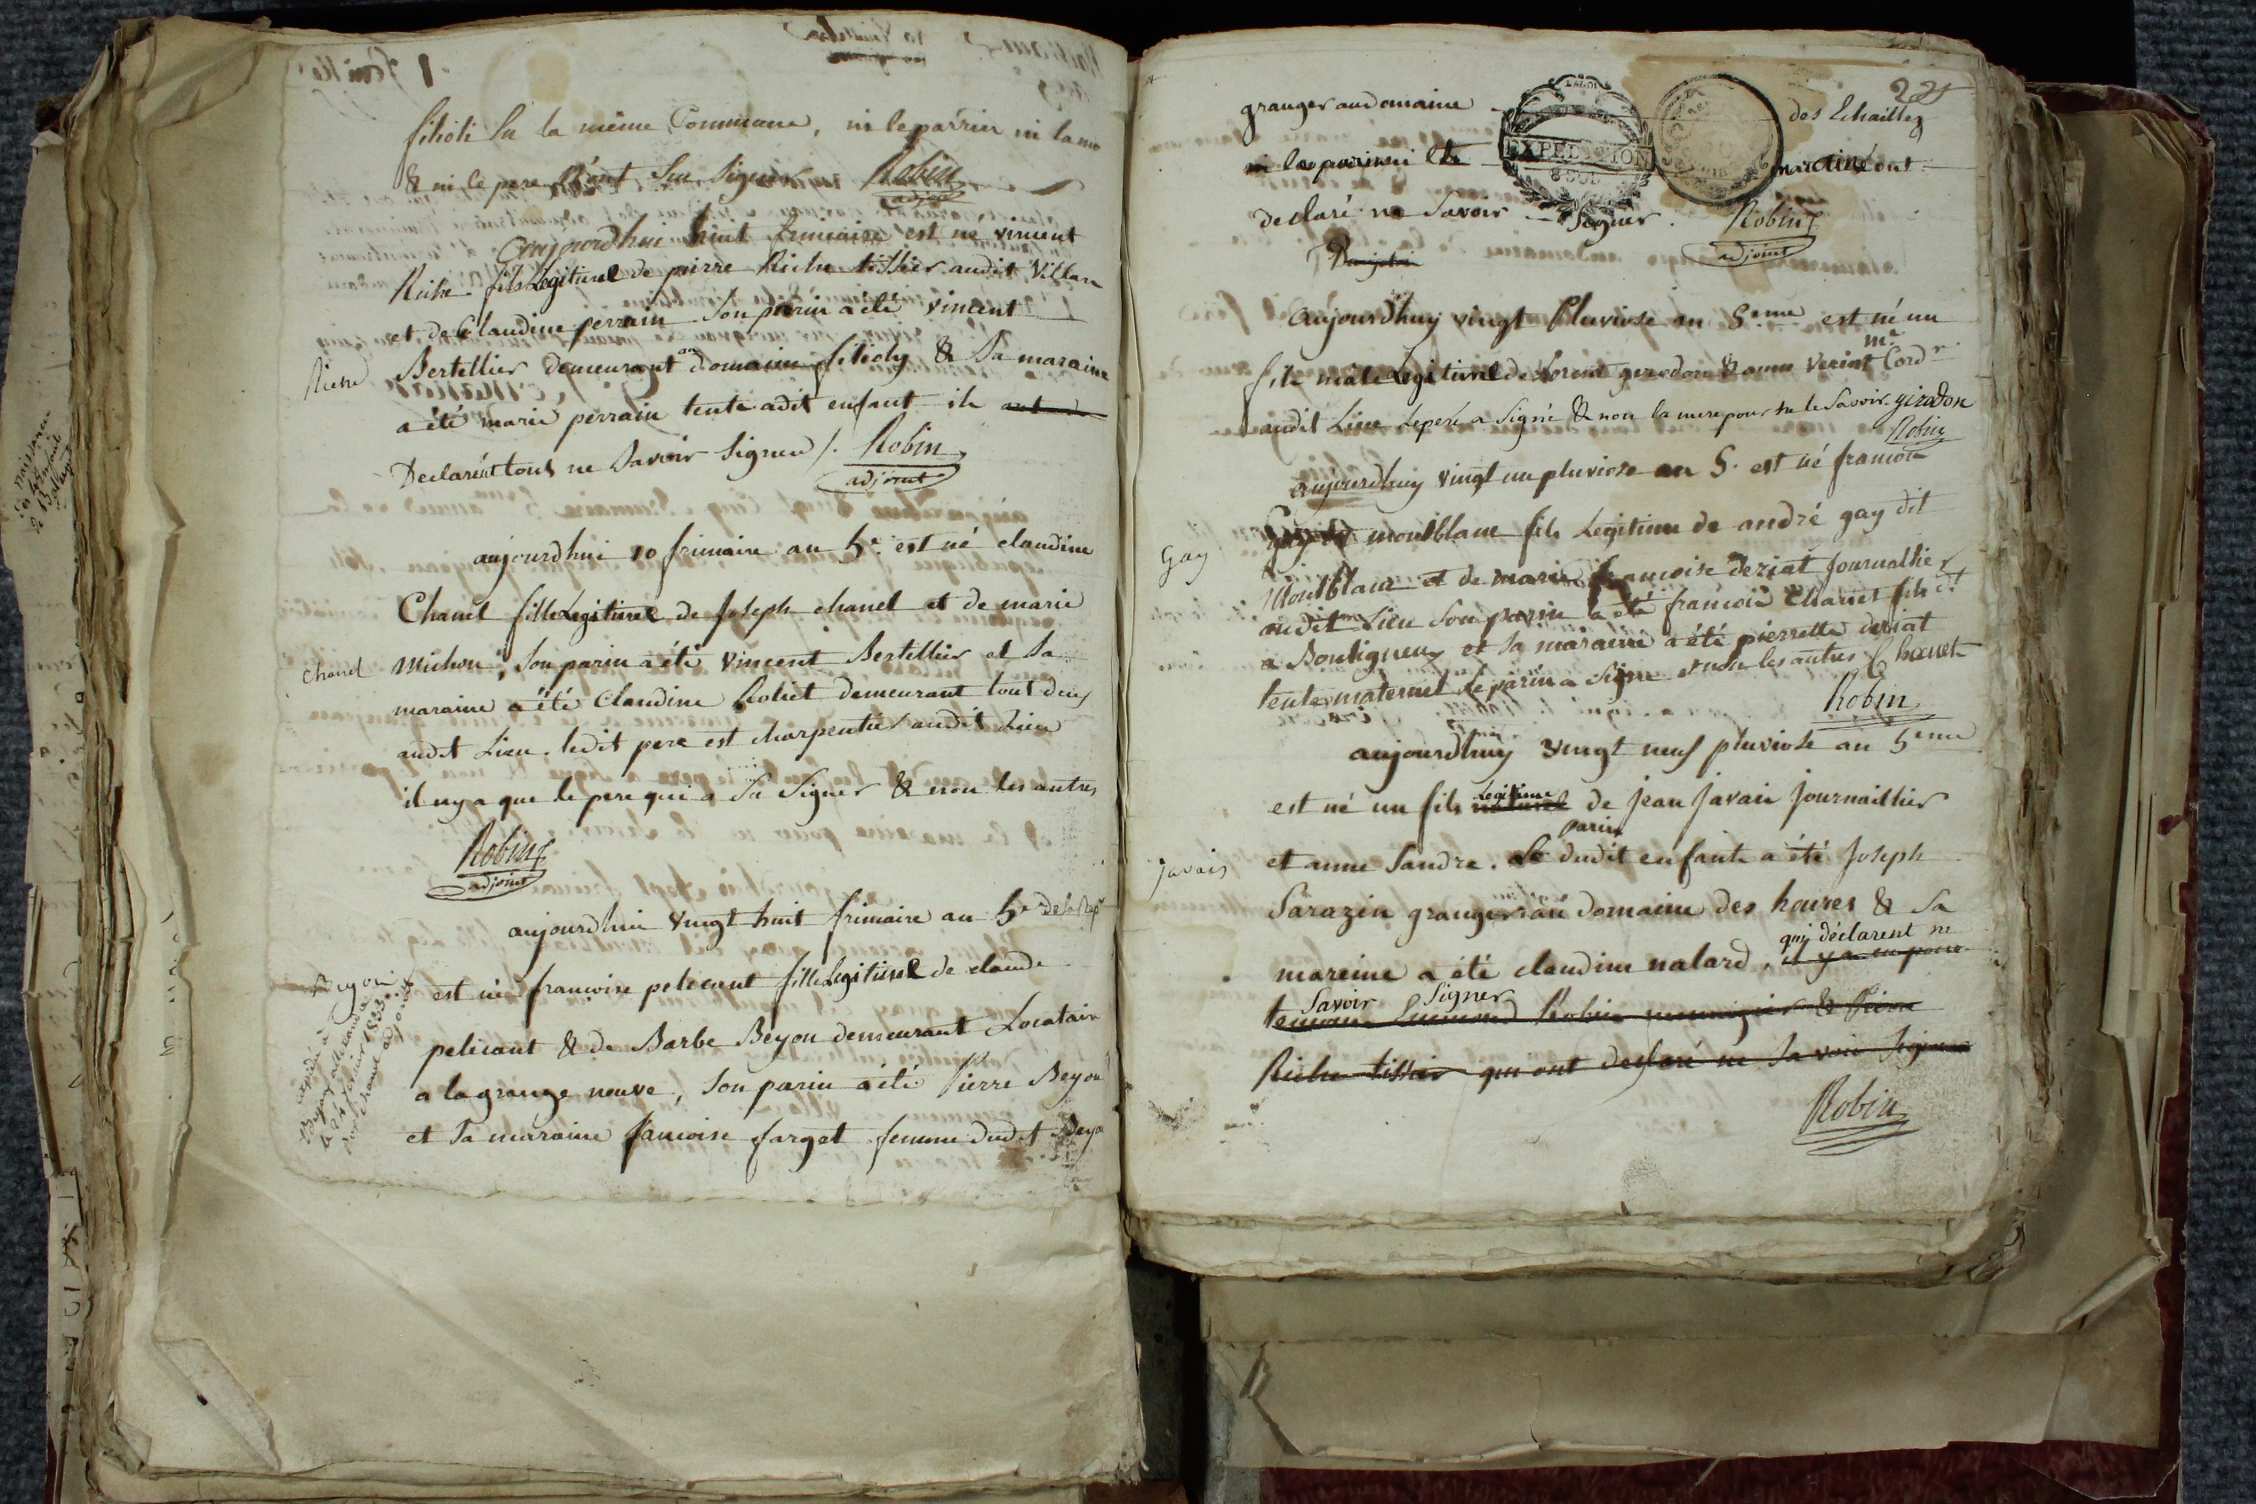 filioli Su la même Commune, ni le parrin ni la
& ni le pere n'ont Seu Signer Robin
adjoint
aujourdhui huit frimaire est né vincent
Riche fils Legitime de pierre Riche tissier audit Villars
et de Claudine perrain Son parin a été vincent
Riche
Bertellier demeurant au domaine filioly & Sa maraine
a été marie perrain tente adit enfant ils
Declarent tous ne Savoir Signer /. Robin
adjoint
aujourdhui 10 frimaire an 5e est né claudine
Chanel fille Legitime de Joseph chanel et de marie
chanel
michon, Son parin a été Vincent Bertellier et Sa
maraine a été Claudine Roliet demeurant tout deux
audit Lieu. ledit pere est charpentier audit Lieu
il ny a que le pere qui a Su Signer & non les autres
Robin
adjoint
aujourdhui vingt huit frimaire an 5e de la Repe
est né francoise pelicant fille Legitime de claude
Beyon
pelicant & de Barbe Beyon demeurant Locataire
a la grange neuve, Son parin a été Pierre Beyon
et Sa maraine francoise farget femme dudit Beyon
granger au domaine des Echailles
EXPEDITION
ni le parin ni la maraine ont
declaré ne Savoir Signer. Robin
adjoint
aujourdhuy vingt Pluviose an 5eme est né un
fils mâle Legitime de Lorent girodon & anne Veriat me Cordr
audit Lieu Le pere a Signé & non la mere pour ne le Savoir girodon
Robin
aujourdhuy vingt un pluviose an 5. est né francois
Gay
montblanc fils Legitime de andré gay dit
Montblanc et de marie francoise deriat Journallier
audit Lieu Son parin a été francois Charvet fils
a Bouligneux et Sa maraine a été pierrette deriat
tente maternel le parin a Signé et non les autres Charvet
Robin
aujourdhuy vingt neuf pluviose an 5eme
est né un fils naturel Legitime de Jean Javais Journaillier
Javais
et anne Sandre. Le parin dudit enfant a été Joseph
Sarazin granger au domaine des houres & Sa
mareine a été claudine nalard, qui déclarent ne
Savoir Signer
Riche tissier qui ont declaré ne Savoir Signer
Robin